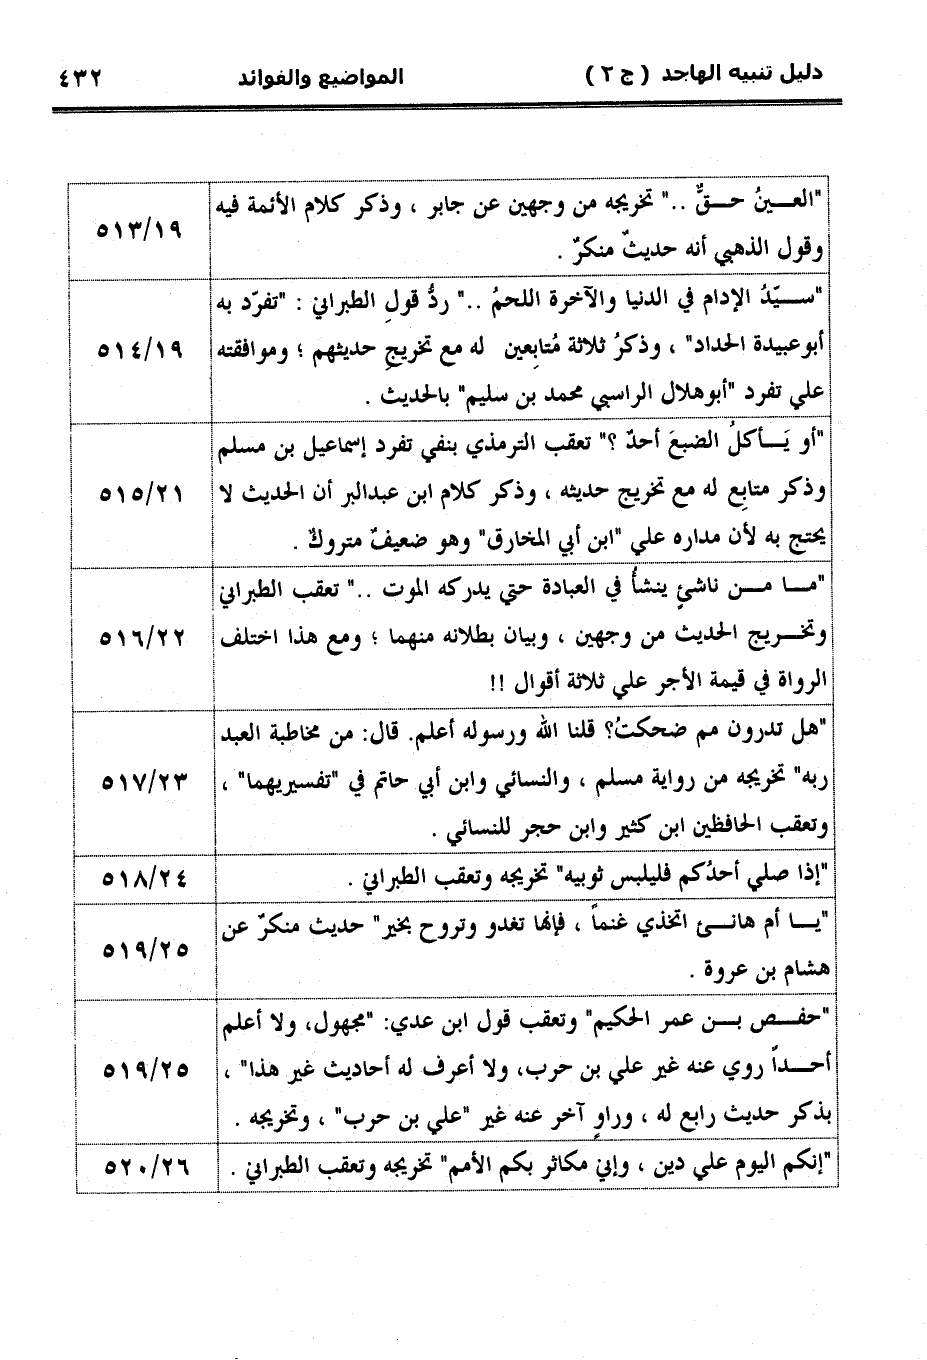 دليل تنبيه الهاجد ( ج ٢ ) المواضيع والفوائد ٤٣٢
"العـــينُ حـــقٌّ .." تخريجه من وجهين عن جابر ، وذكر كلام الأئمة فيه
وقول الذهبي أنه حديثٌ منكرٌ .
٥١٣/١٩
"ســـيّدُ الإدام في الدنيا والآخرة اللحمُ .." ردُّ قولِ الطبراني : "تفرّد به
أبوعبيدة الحداد" ، وذكرُ ثلاثة مُتابِعين له مع تخريجِ حديثهم ؛ وموافقته
علي تفرد "أبوهلال الراسبي محمد بن سليم" بالحديث .
٥١٤/١٩
"أو يَـــأكلُ الضبعَ أحدٌ ؟" تعقب الترمذي بنفي تفرد إسماعيل بن مسلم
وذكر متابِع له مع تخريج حديثه ، وذكر كلام ابن عبدالبر أن الحديث لا
يحتج به لأن مداره علي "ابن أبي المخارق" وهو ضعيفٌ متروكٌ .
٥١٥/٢١
"مـــا مـــن ناشئٍ ينشأُ في العبادة حتي يدركه الموت .." تعقب الطبراني
وتخـــريج الحديث من وجهين ، وبيان بطلانه منهما ؛ ومع هذا اختلف
الرواة في قيمة الأجر علي ثلاثة أقوال !!
٥١٦/٢٢
"هل تدرون مم ضحكتُ؟ قلنا الله ورسوله أعلم. قال: من مخاطبة العبد
ربه" تخريجه من رواية مسلم ، والنسائي وابن أبي حاتم في "تفسيريهما" ،
وتعقب الحافظين ابن كثير وابن حجر للنسائي .
٥١٧/٢٣
"إذا صلي أحدُكم فليلبس ثوبيه" تخريجه وتعقب الطبراني .
٥١٨/٢٤
"يـــا أم هانـــئ اتخذي غنماً ، فإنها تغدو وتروح بخير" حديث منكرٌ عن
هشام بن عروة .
٥١٩/٢٥
"حفـــص بـــن عمر الحكيم" وتعقب قول ابن عدي: "مجهول، ولا أعلم
أحـــداً روي عنه غير علي بن حرب، ولا أعرف له أحاديث غير هذا" ،
بذكر حديث رابع له ، وراوٍ آخر عنه غير "علي بن حرب" ، وتخريجه .
٥١٩/٢٥
"إنكم اليوم علي دين ، وإني مكاثر بكم الأمم" تخريجه وتعقب الطبراني .
٥٢٠/٢٦